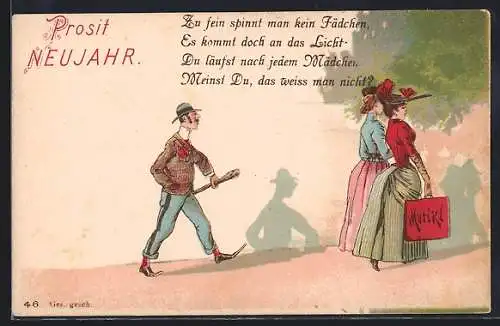 Prosit
NEUJAHR.
Zu fein spinnt man kein Fädchen,
Es kommt doch an das Licht-
Du läufst nach jedem Mädchen
Meinst Du, das weiss man nicht?
46 Ges. gesch.